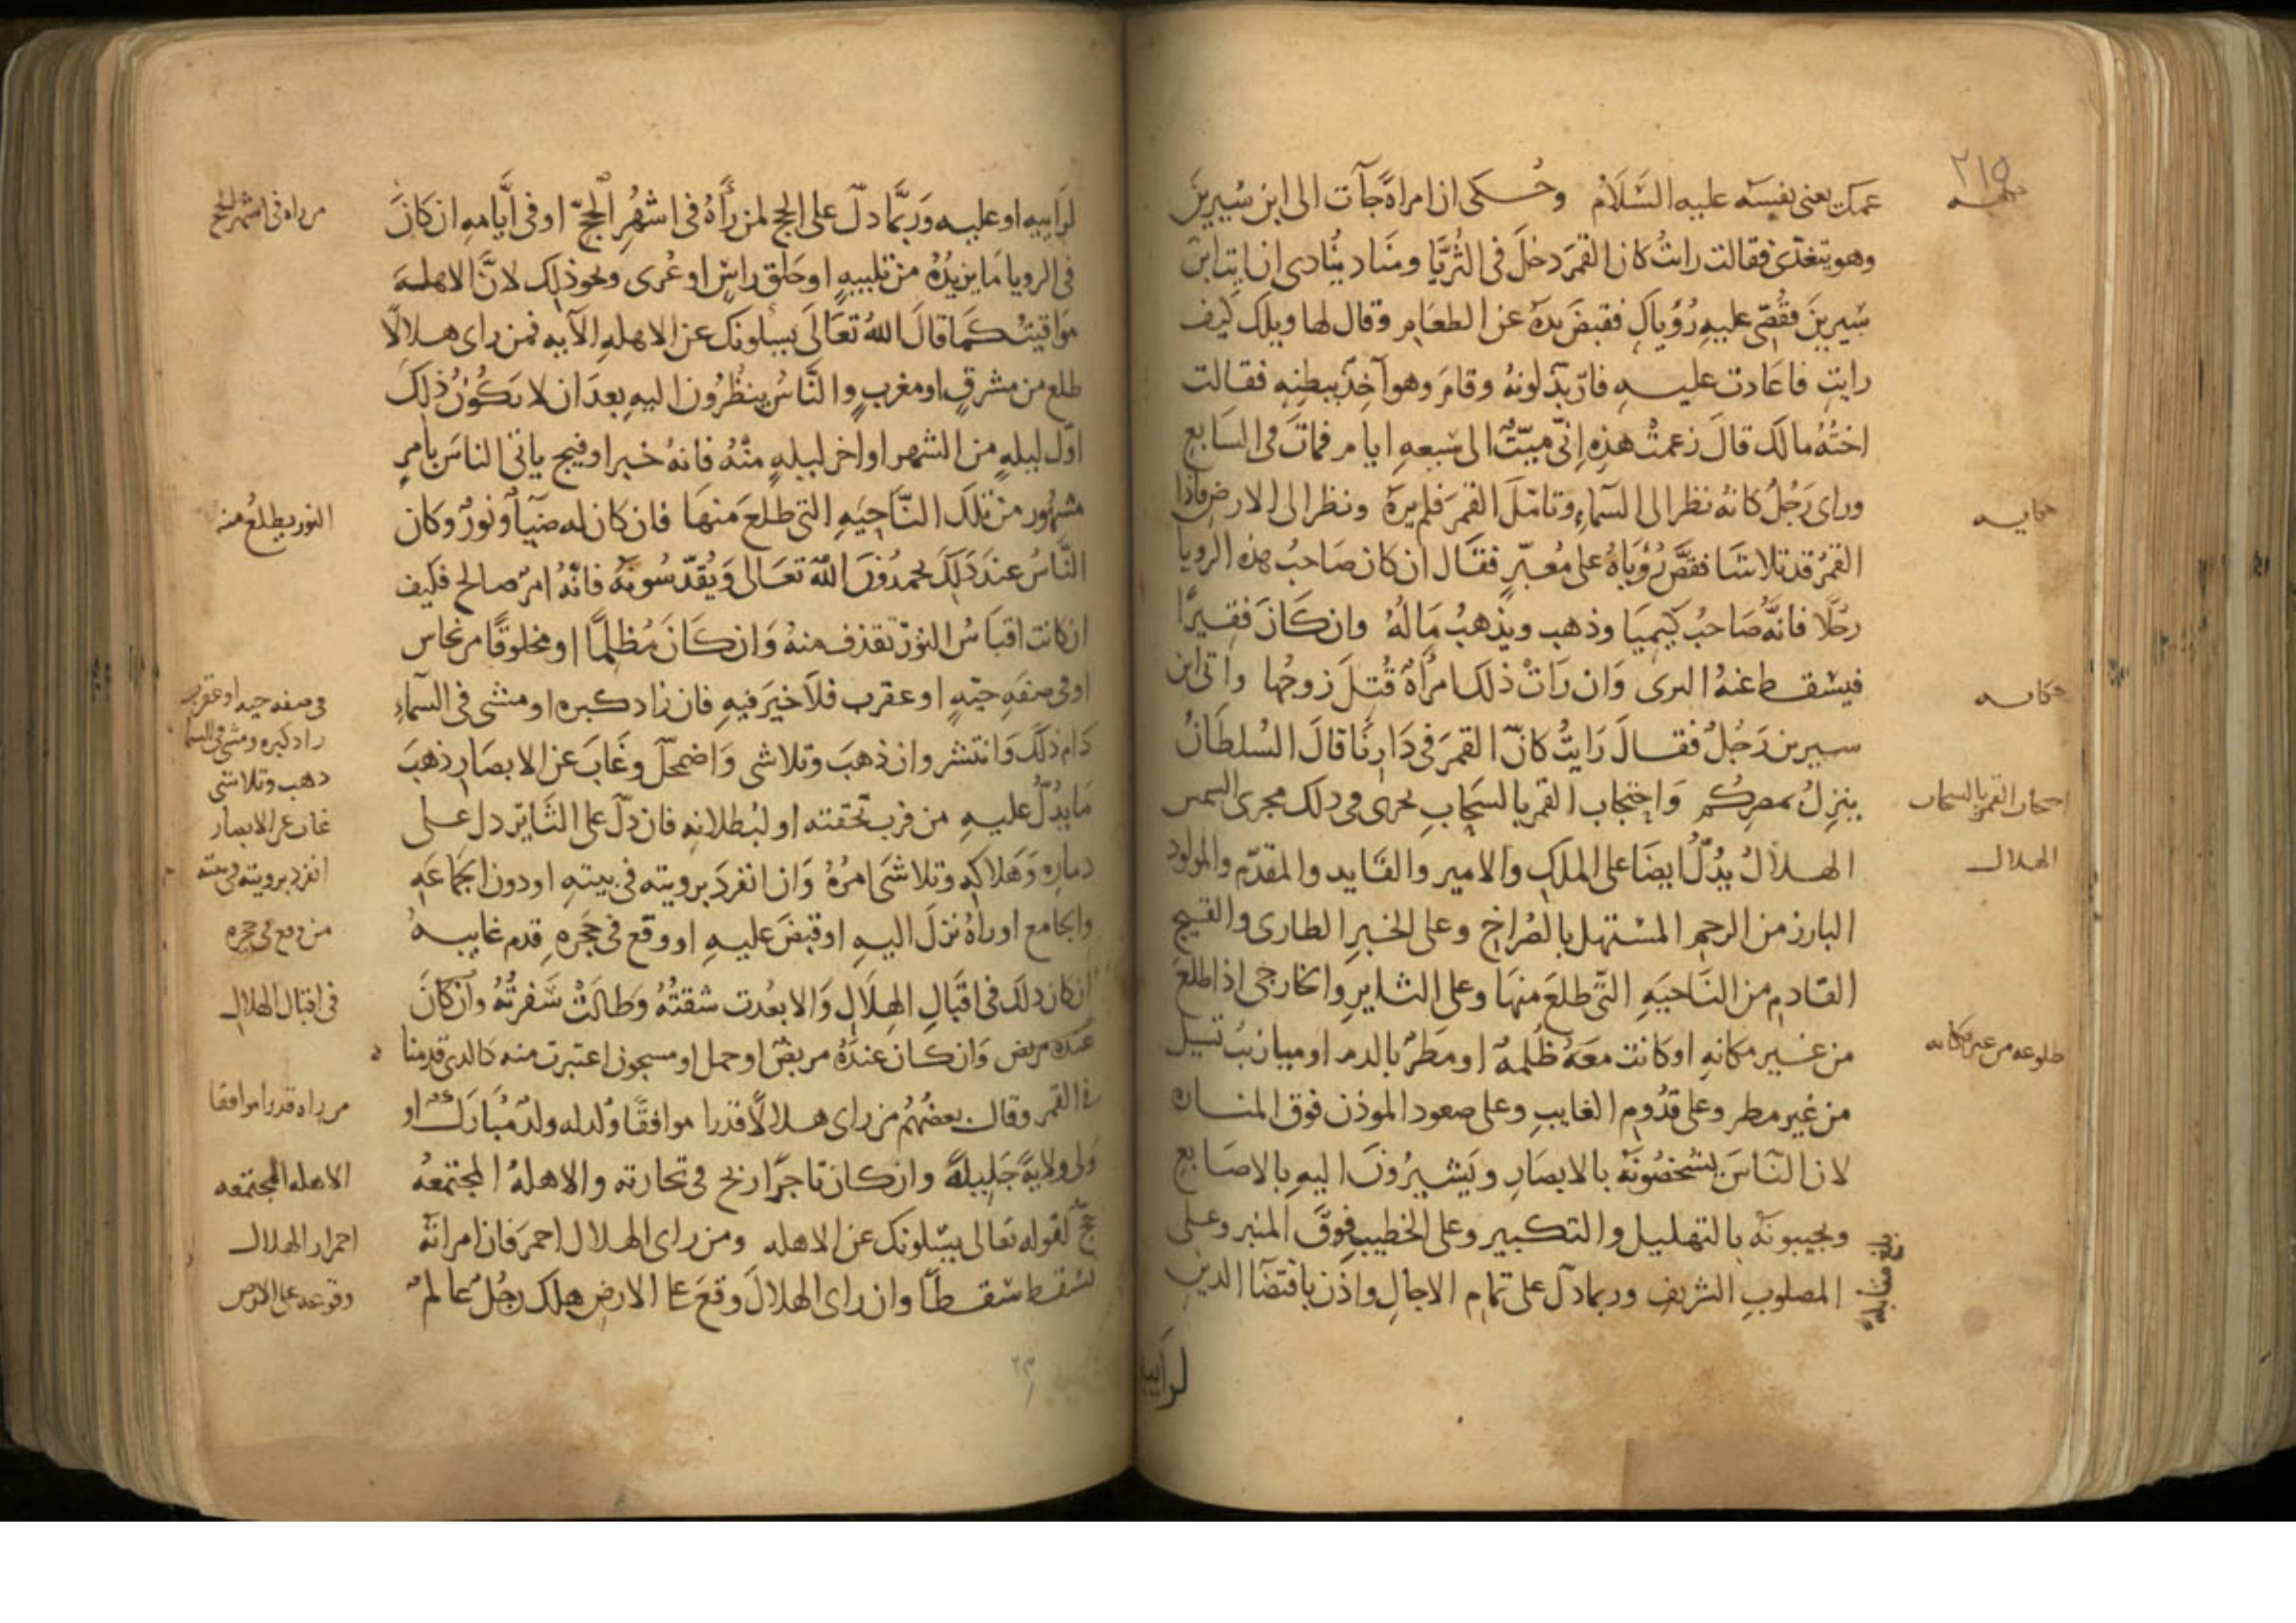 ٢١٥
عمك يعنى نفسه عليه السَّلَامُ وحُكى ان امراةً جآت الى ابن سيرينَ
وهو يتغدّى فقالت رايتُ كان القمرَ دخلَ فى الثُرَيَّا ومنَاد يُنادى ان ايتِ ابن
سيرينَ فقُصّى عليه رُؤياكِ فقبضَ يدهُ عن الطعَامِ وقال لها ويلك كيف
رايتِ فاعَادت عليه فاربَدّ لونهُ وقامَ وهو آخِذ ببطنِهِ فقالت
اختُهُ مالكَ قالَ زعمتْ هذِه اِنّى ميّتٌ الى سَبعهِ ايام فماتَ فى السَابع
وراى رَجُلٌ كانهُ نظر الى السمآءِ وتامّلَ القمَر فلم يرَهُ ونظر الى الارضِ فاذا
القمرُ قد تلاشَا فقصَّ رُؤيَاهُ على مُعبّرٍ فقال ان كان صَاحبُ هذه الرويا
رجُلًا فانّه صَاحبُ كيميَا وذهب ويذهبُ مَالُهُ وان كَانَ فقيرًا
فيسقط عنهُ البرى وَان رَاتْ ذلك امرأَة قُتِلَ زوجُها واتى ابن
سيرين رَجُلٌ فقالَ رَايتُ كانّ القمرَ فى دَارِنَا قالَ السُلطانُ
ينزِلُ بمصرِكُم وَاحتجَاب القمر بالسحَابِ يجرى فى ذلك مجرى الشمس
الهلالُ يدُلُّ ايضَا على الملكِ والامير والقَايد والمقدّم والمولود
البارز من الرحم المسْتهل بالصُراخِ وعلى الخبرِ الطارى والفيج
القادم من النَاحيَهِ التّى طلعَ منهَا وعلى الثايرِ والخارجى اذا طلعَ
من غير مكانهِ او كانت معَهُ ظُلمه او مطرٌ بالدم او ميازيبُ تسيل
من غير مطر وعلى قدُوم الغايبِ وعلى صعود الموذن فوق المناره
لان النّاسَ يشخصُونَهُ بالابصَارِ ويَشيرُونَ اليهِ بالاصَابع
ويجيبونَه بالتهليل والتكبير وعلى الخطيب فوقَ المنبر وعلى
المصلوبِ الشريفِ وربما دلّ على تمام الاجالِ واذن باقتضآ الدين
حكايه
حكايه
احتجاب القمر بالسحاب
الهلال
طلوعه من غير مكانه
لرابيه
لرَابيهِ او عليه وَربَّما دلّ على الحج لمن رأَهُ فى اشهُرِ الحجّ او فى ايَّامهِ ان كانَ
فى الرويا مَا يزيدُهُ من تلبيهٍ او حَلق راسٍ او عُرى ونحو ذلِك لانَّ الاهلهَ
مَواقيتُ كمَا قالَ اللهُ تعَالَى يسألونك عن الاهلهِ الآيه فمن راى هلالًا
طلع من مشرقٍ او مغربٍ والنَّاسُ ينظُرُون اليهِ بعدَ ان لا يَكُونُ ذلِكَ
اوّل ليلهٍ من الشهر او اخر ليلهٍ منْهُ فانهُ خبر او فيج ياتى الناسَ بأمرٍ
مشهُور من تلكَ النّاحِيَهِ التى طلعَ منهَا فان كان له ضيَآ ونورٌ وكان
النَّاسُ عندَ ذلِكَ يحمدُونَ اللهَ تعَالى وَيُقدّسُونهُ فانّهُ امرٌ صالح فكيف
ان كانت اقبَاسُ النورِ تقذف منهُ وَان كَانَ مُظلِمًا او مخلوقًا من نحاس
او فى صفَهِ حيّهٍ او عقرب فلاَ خيرَ فيهِ فان زاد كبره او مشى فى السمآءِ
دَام ذلكَ وَانتشر وان ذهبَ وتلاشى وَاضمحلّ وغَابَ عن الابصَارِ ذهبَ
مَا يدُلُّ عليهِ من قرب تحقته او لبُطلانهِ فان دلّ على الثَاير دل على
دماره وَهَلاكِهِ وتلاشَى امرُهُ وَان انفردَ برويته فى بيتهِ او دون الجَمَاعَهِ
والجامع او راهُ نزلَ اليهِ او قبضَ عليهِ او وقع فى حجَره قدم غايبهُ
ان كان ذلكَ فى اقبَالِ الهِلَالِ وَالا بعُدت شقتُهُ وَطالَتْ سَفرتُهُ وان كانَ
عندَه مريض وَان كان عندَهُ مريضٌ او حمل او مسجون اعتبرت منه كالذى قدمنا
فى القمر وقال بعضُهُم من راى هلالًا قدرا موافقًا وُلد له ولدٌ مُبَاركٌ او
وَلى ولايةً جَليلةً وان كان تاجرًا ربح فى تجارته والاهلهُ المجتمعهُ
حجّ لقوله تعالى يسئلونك عن الاهله ومن راى الهلال احمرَ فان امراتَه
تسقط سَقطًا وان راى الهلالَ وقعَ على الارضِ هلك رجُلٌ عالمٌ
من راه فى اشهر الحج
النور يطلع منه
فى صفه حيه او عقرب
زاد كبره ومشى فى السما
ذهب وتلاشى
غاب عن الابصار
انفرد برويته فى بيته
من وقع فى حجره
فى اقبال الهلال
من راه قدرا موافقا
الاهله المجتمعه
احمرار الهلال
وقوعه على الارض